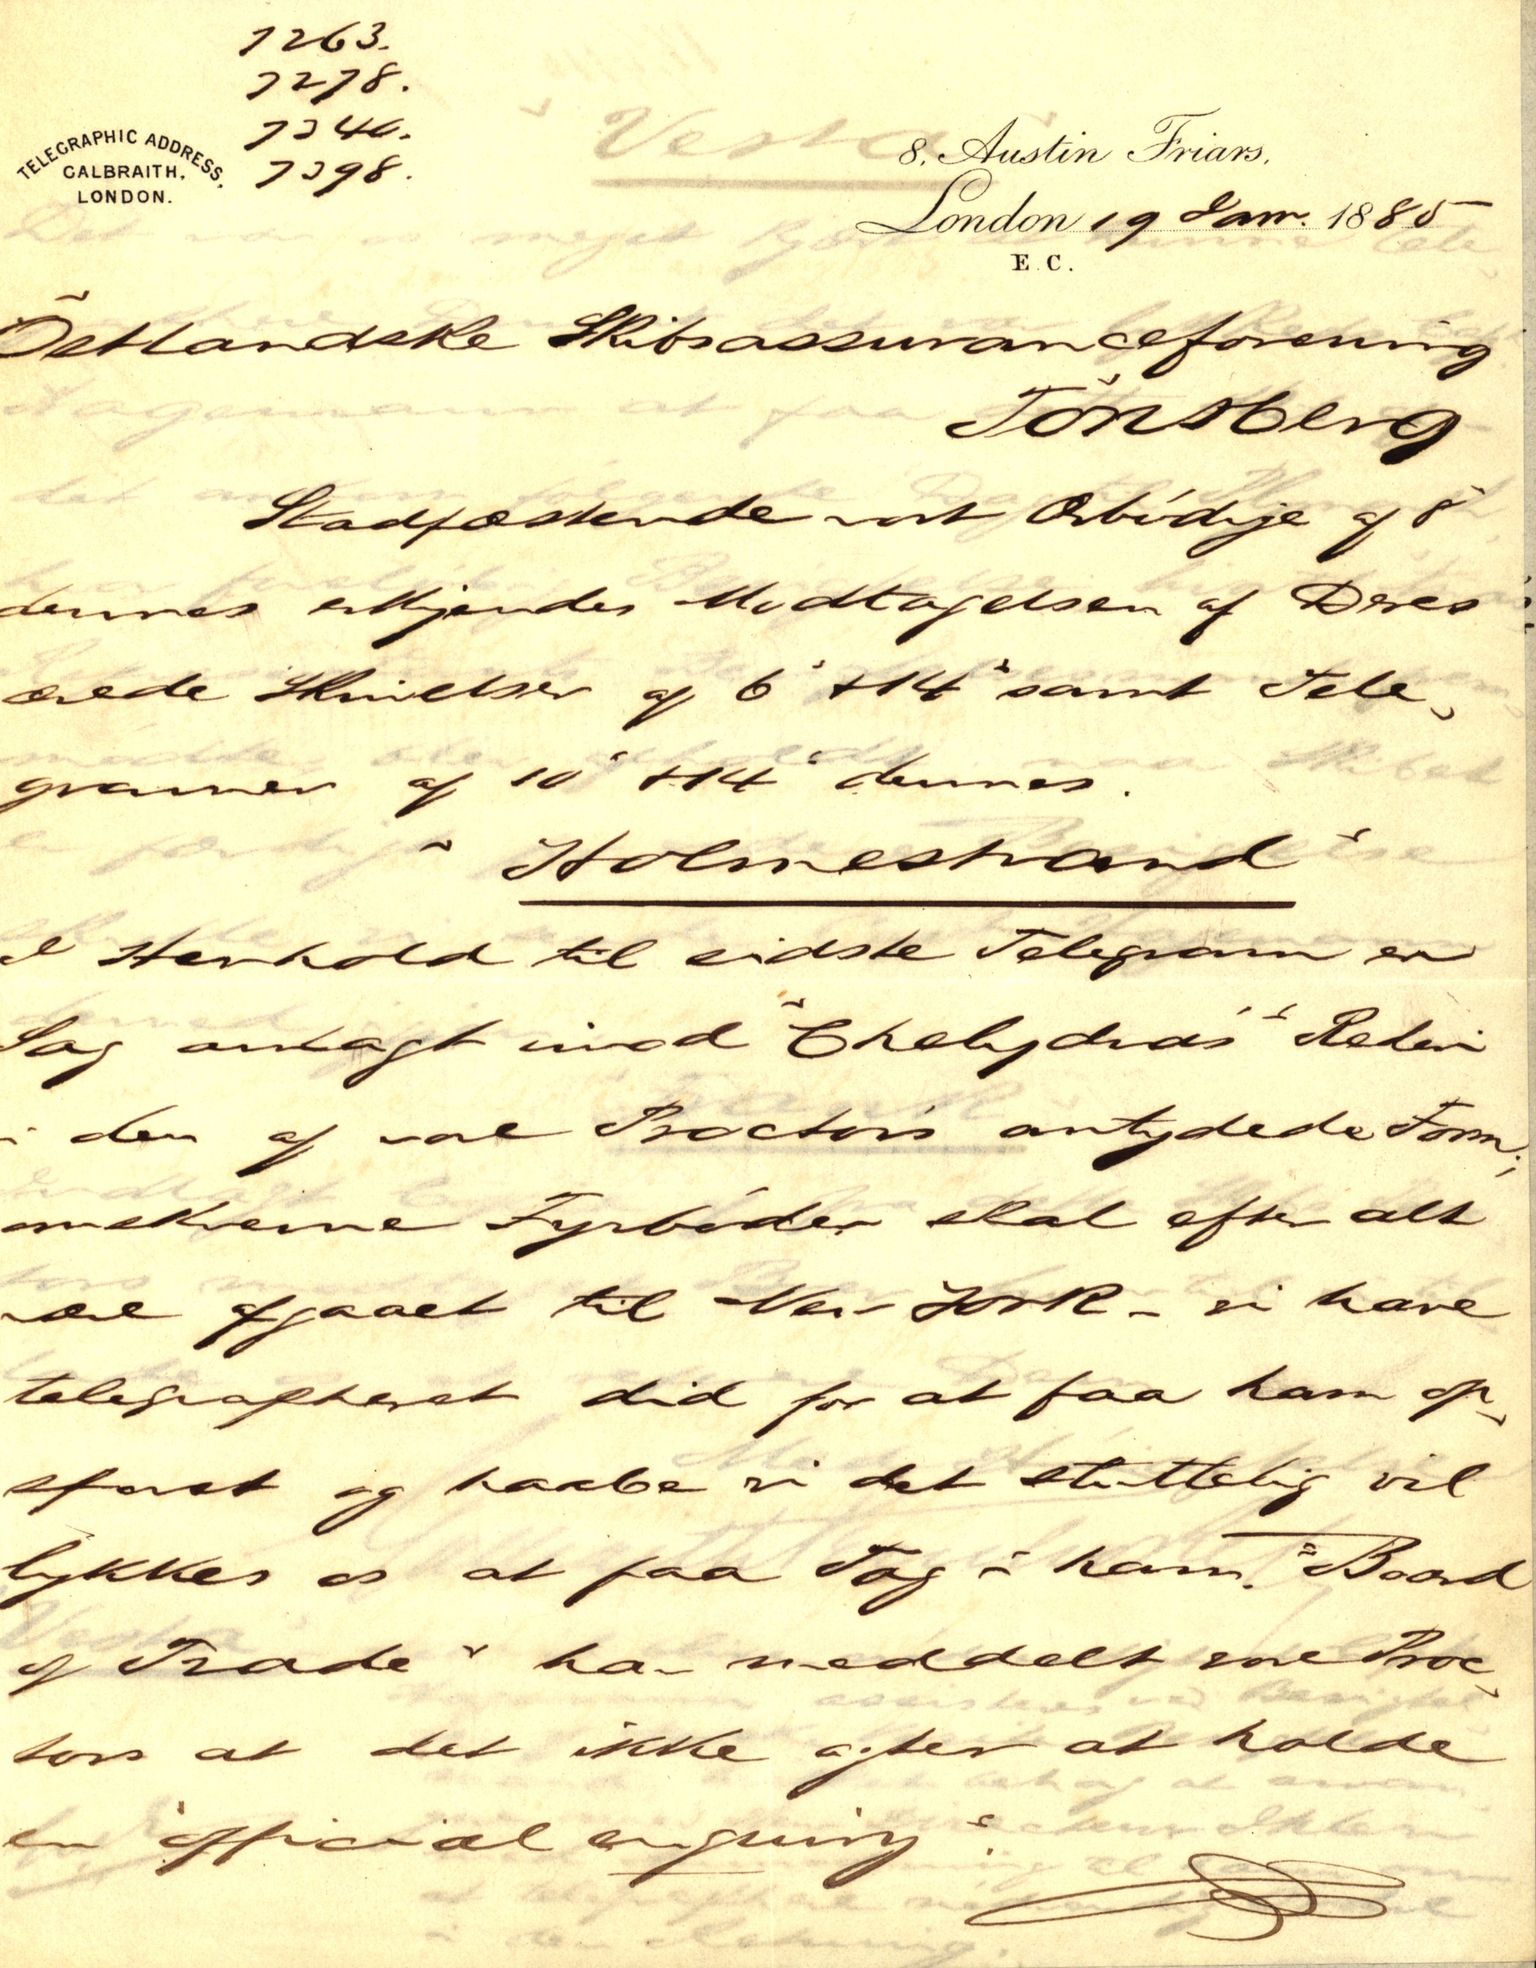 7263.
7278.
7344.
7398.
TELEGRAPHIC ADDRESS,
GALBRAITH,
LONDON.
"Vesta"
8, Austin Friars,
London 19 Jan. 1885
E.C.
Östlandske Skibsassuranceforening
Tönsberg
Stadfæstende vort Ærbödige af 8'
dennes erkjendes Modtagelsen af Deres
ærede Skrivelser af 6' & 14' samt Tele-
grammer af 10' & 14' dennes.
"Holmestrand"
I Henhold til sidste Telegram er
Sag anlagt imod "Chelydra's" Rederi
i den af vore Proctors antydede Form;
omskrevne Fyrböder skal efter alt
være afgaaet til New York - vi have
telegrapheret did for at faa ham op-
spurt og haabe vi det sluttelig vil
lykkes os at faa Tag i ham. "Board
of Trade" har meddelt vore Proc-
tors at det ikke agter at holde
en "official enquiry".